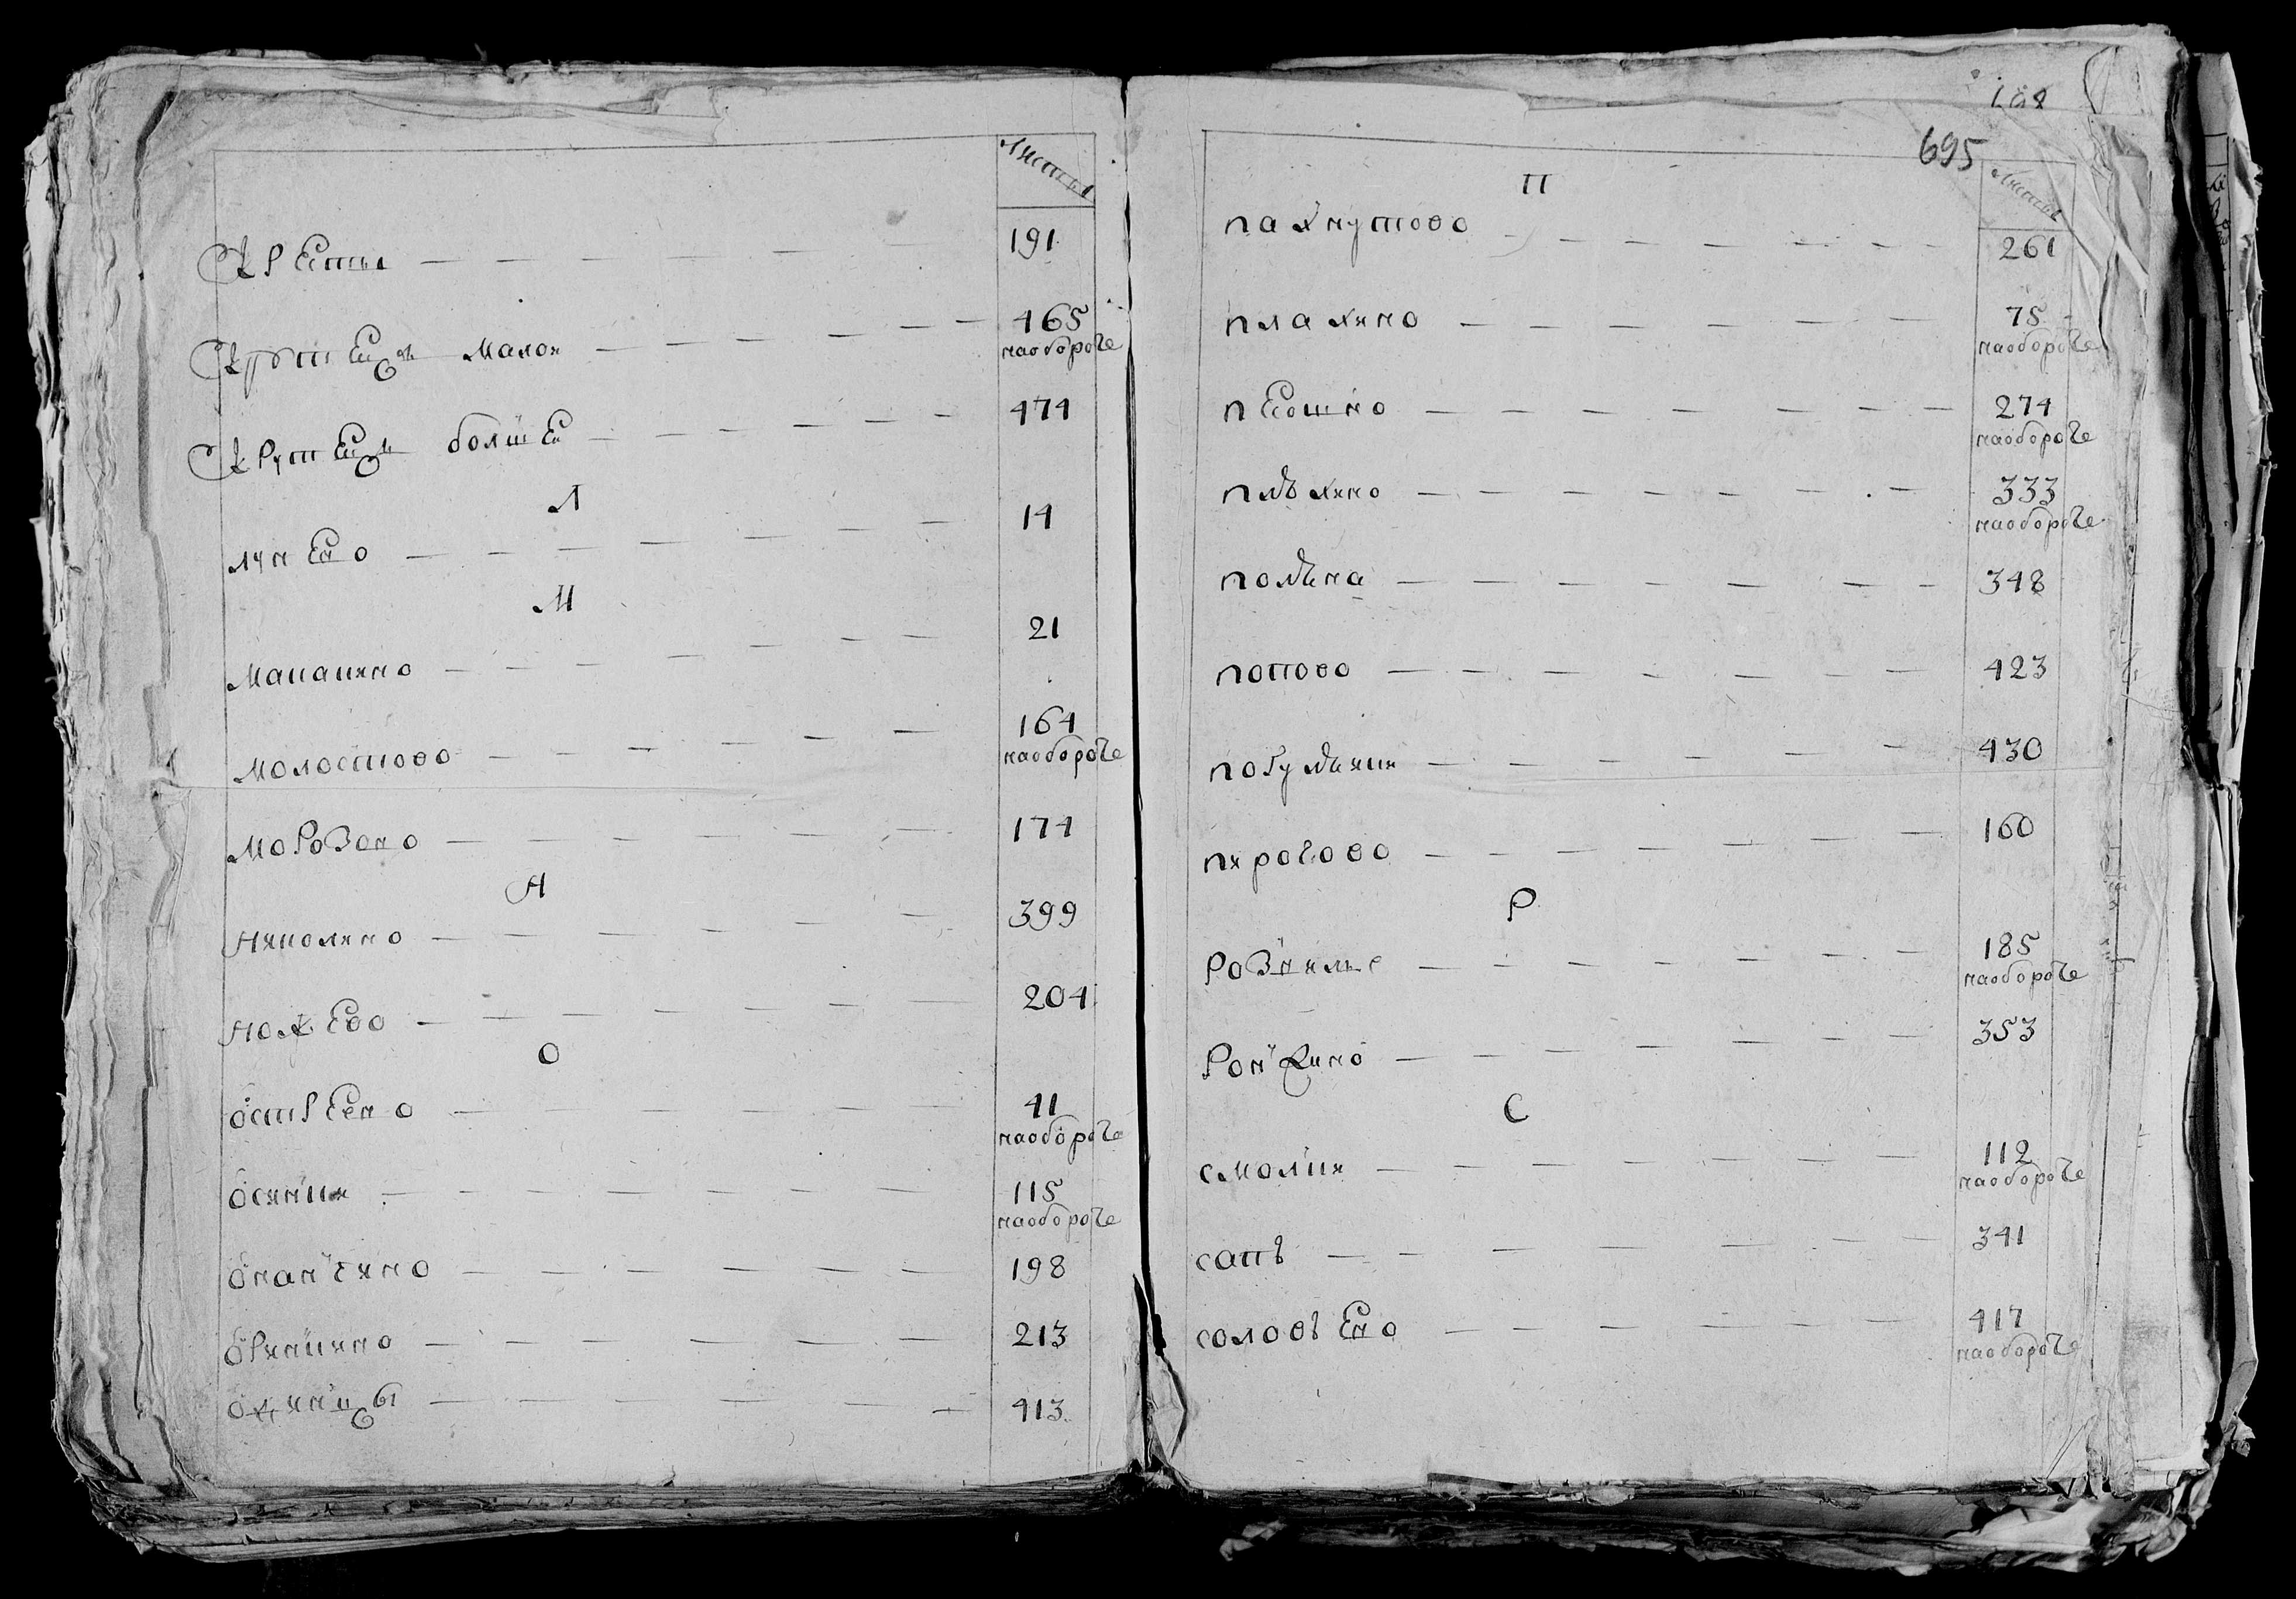 Листы
Кресты 191
Крутецъ малои 465
наоборотѣ
Крутецъ болшеи 474
Л
лунево 14
М
Мапанино
21
Молостово 164
наоборотѣ
Морозово 174
Н
Никонино 399
Ножево 204
О
остренево 41
наоборотѣ
осинки 115
наоборотѣ
онанчино 198
оринкино 213
одинцы 413
695
Листы
П
пахнутово 261
плахино 75
наоборотѣ
певшно 274
наоборотѣ
плѣхино 333
наоборотѣ
полѣна 348
попово 423
погулѣнки 430
пирогово 160
Р
Рознилье 185
наоборотѣ
Ронкино 353
С
смолки 112
наоборотѣ
сапъ 341
соловьево 417
наоборотѣ